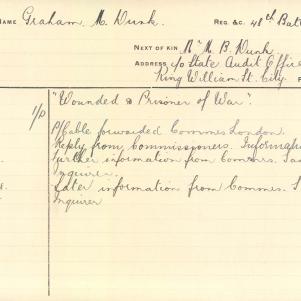 NAME Graham M. Dunk REG: &C: 48th Batt
NEXT OF KIN Mr M. B. Dunk
ADDRESS c/o State Audit Office
King William St. City
1/p "Wounded & Prisoner of War."
cable forwarded Commrs London.
Reply from Commissioners. Informa
further information from Commrs.
Inquirer.
Later information from Commrs.
Inquirer